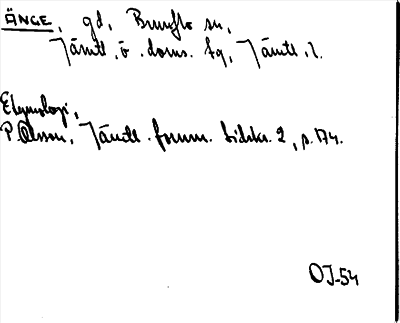 ÄNGE, gd, Brunflo sn,
Jämtl. ö. doms. fq, Jämtl. l.
Etymologi,
P. Olsson, Jämtl. fornm. tidskr. 2, s. 174.
OJ-54